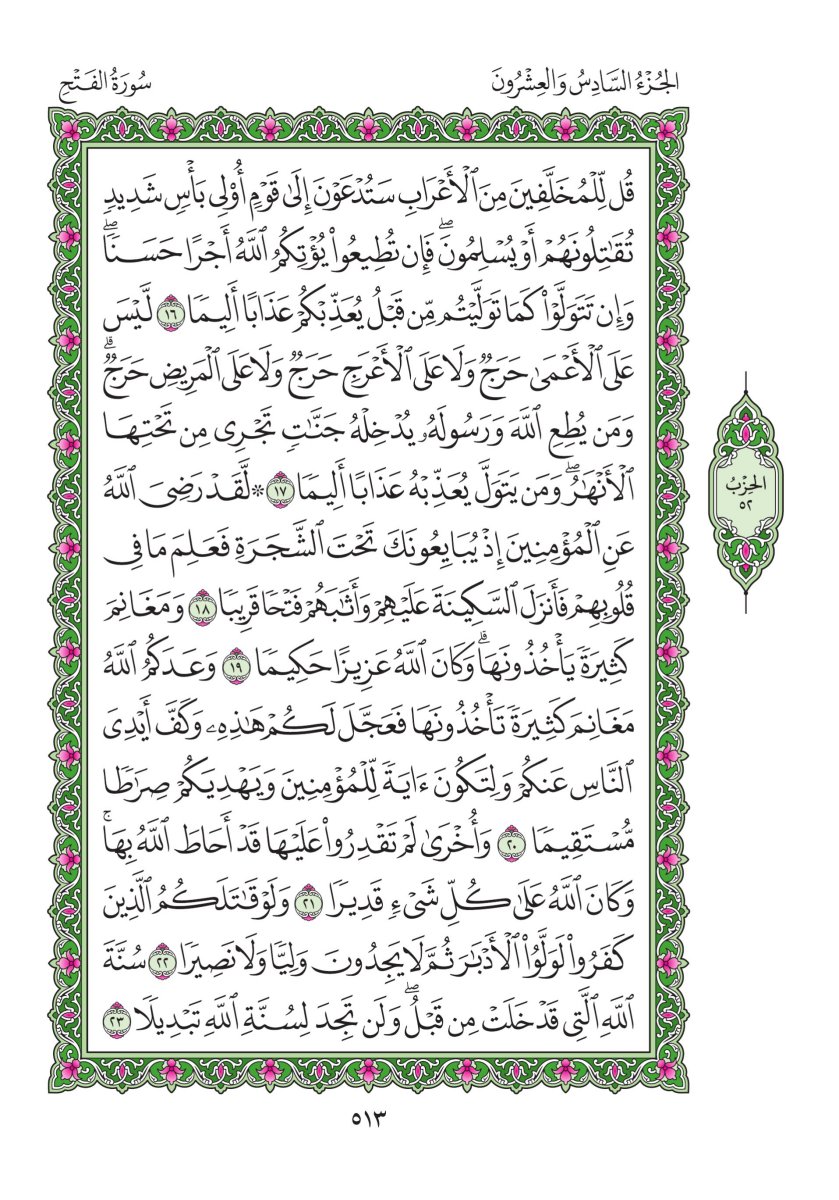 الجُزْءُ السَّادِسُ وَالعِشْرُونَ
سُورَةُ الفَتْحِ
قُل لِّلْمُخَلَّفِينَ مِنَ ٱلْأَعْرَابِ سَتُدْعَوْنَ إِلَىٰ قَوْمٍ أُو۟لِى بَأْسٍ شَدِيدٍ
تُقَـٰتِلُونَهُمْ أَوْ يُسْلِمُونَ ۖ فَإِن تُطِيعُوا۟ يُؤْتِكُمُ ٱللَّهُ أَجْرًا حَسَنًا ۖ
وَإِن تَتَوَلَّوْا۟ كَمَا تَوَلَّيْتُم مِّن قَبْلُ يُعَذِّبْكُمْ عَذَابًا أَلِيمًا ١٦ لَّيْسَ
عَلَى ٱلْأَعْمَىٰ حَرَجٌ وَلَا عَلَى ٱلْأَعْرَجِ حَرَجٌ وَلَا عَلَى ٱلْمَرِيضِ حَرَجٌ ۗ
وَمَن يُطِعِ ٱللَّهَ وَرَسُولَهُۥ يُدْخِلْهُ جَنَّـٰتٍ تَجْرِى مِن تَحْتِهَا
ٱلْأَنْهَـٰرُ ۖ وَمَن يَتَوَلَّ يُعَذِّبْهُ عَذَابًا أَلِيمًا ١٧ * لَّقَدْ رَضِىَ ٱللَّهُ
عَنِ ٱلْمُؤْمِنِينَ إِذْ يُبَايِعُونَكَ تَحْتَ ٱلشَّجَرَةِ فَعَلِمَ مَا فِى
قُلُوبِهِمْ فَأَنزَلَ ٱلسَّكِينَةَ عَلَيْهِمْ وَأَثَـٰبَهُمْ فَتْحًا قَرِيبًا ١٨ وَمَغَانِمَ
كَثِيرَةً يَأْخُذُونَهَا ۗ وَكَانَ ٱللَّهُ عَزِيزًا حَكِيمًا ١٩ وَعَدَكُمُ ٱللَّهُ
مَغَانِمَ كَثِيرَةً تَأْخُذُونَهَا فَعَجَّلَ لَكُمْ هَـٰذِهِۦ وَكَفَّ أَيْدِىَ
ٱلنَّاسِ عَنكُمْ وَلِتَكُونَ ءَايَةً لِّلْمُؤْمِنِينَ وَيَهْدِيَكُمْ صِرَٰطًا
مُّسْتَقِيمًا ٢٠ وَأُخْرَىٰ لَمْ تَقْدِرُوا۟ عَلَيْهَا قَدْ أَحَاطَ ٱللَّهُ بِهَا ۚ
وَكَانَ ٱللَّهُ عَلَىٰ كُلِّ شَىْءٍ قَدِيرًا ٢١ وَلَوْ قَـٰتَلَكُمُ ٱلَّذِينَ
كَفَرُوا۟ لَوَلَّوُا۟ ٱلْأَدْبَـٰرَ ثُمَّ لَا يَجِدُونَ وَلِيًّا وَلَا نَصِيرًا ٢٢ سُنَّةَ
ٱللَّهِ ٱلَّتِى قَدْ خَلَتْ مِن قَبْلُ ۖ وَلَن تَجِدَ لِسُنَّةِ ٱللَّهِ تَبْدِيلًا ٢٣
الحِزْبُ
٥٢
٥١٣